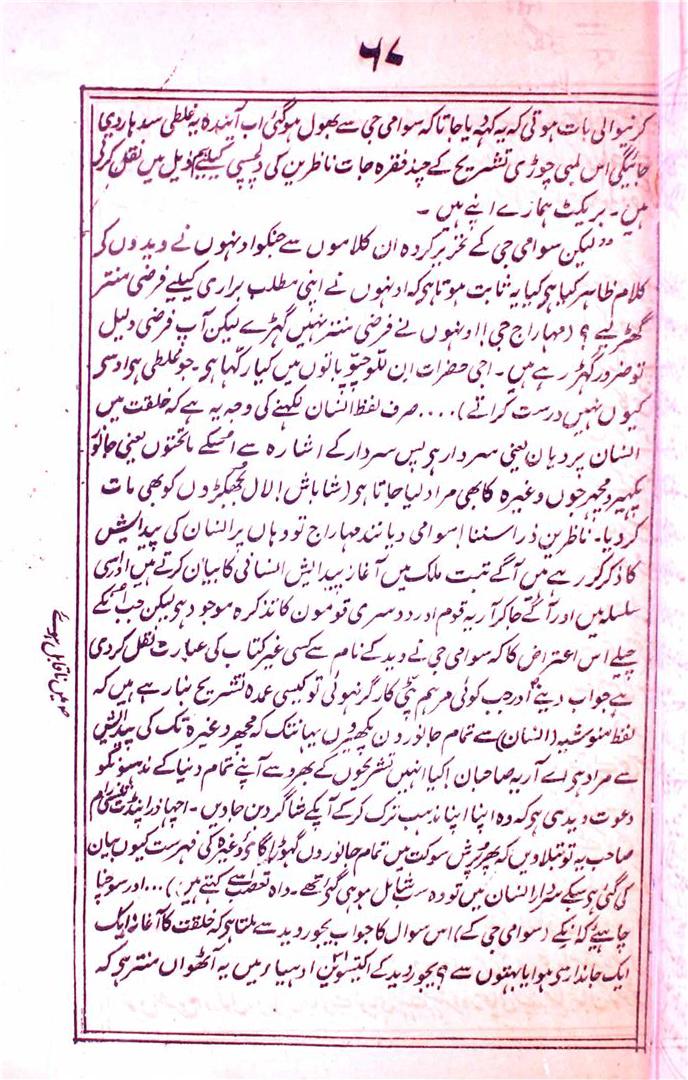 ۶۸
کرنیوالی بات ہوتی کہ یہ کہہ دیا جاتا کہ سوامی جی سے بھول ہوگئی اب آیندہ یہ غلطی سدہار دی
جائیگی اس لمبی چوڑی تشریح کے چند فقرہ جات ناظرین کی دلچسپی کیلئے ہم ذیل میں نقل کرتے
ہیں۔ بریکٹ ہمارے اپنے ہیں۔
" لیکن سوامی جی کے تحریر کردہ ان کلاموں سے جنکو اونہوں نے ویدوں کی
کلام ظاہر کیا ہی کیا یہ ثابت ہوتا ہی کہ اونہوں نے اپنی مطلب براری کیلئے فرضی منتر
گھڑ لیے ؟ (مہاراج جی! اونہوں نے فرضی منتر نہیں گہڑے لیکن آپ فرضی دلیل
تو ضرور گہڑ رہے ہیں۔ اجی حضرات ان للّو چپو باتوں میں کیا رکھا ہی۔ جو غلطی ہو اوسی
کیوں نہیں درست کراتے) .... صرف لفظ انسان لکہنے کی وجہ یہ ہے کہ خلقت میں
انسان پردہان یعنی سردار ہی پس سردار کے اشارہ سے اسکے ماتحتوں یعنی جانور
پکہیرو مچہر جوں وغیرہ کا بھی مراد لیا جاتا ہی (شاباش! لال بجھکڑوں کو بھی مات
کر دیا۔ ناظرین ذرا سننا! سوامی دیانند مہاراج تو وہاں پر انسان کی پیدایش
کا ذکر کر رہے ہیں آگے تبت ملک میں آغاز پیدایش انسانی کا بیان کرتے ہیں اور اسی
سلسلہ میں اور آگے جا کر آریہ قوم اور دوسری قوموں کا تذکرہ موجود ہی لیکن جب انکے
چیلے اس اعتراض کا کہ سوامی جی نے وید کے نام سے کسی غیر کتاب کی عبارت نقل کر دی
ہے جواب دینے اور جب کوئی مرہم پٹی کارگر نہوئی تو کیسی عمدہ تشریح بنا رہے ہیں کہ
لفظ منوشیہ (انسان) سے تمام جانوروں پکھیروں یہانتک کہ مچھر وغیرہ تک کی پیدایش
سے مراد ہی اے آریہ صاحبان! کیا انہیں تشریحوں کے بھروسے آپنے تمام دنیا کے مذہبونکو
دعوت دیدی ہو کہ وہ اپنا اپنا مذہب ترک کرکے آپکے شاگرد بن جاویں۔ اچہا ذرا پنڈت
صاحب یہ تو بتلاویں کہ پھر پرش سوکت میں تمام جانوروں گہوڑا گائے وغیرہ کی فہرست کیوں بیان
کی گئی ہی سبکے سردار انسان ہیں تو وہ سب شامل ہو ہی گئے تھے۔ واہ تعصب اسے کہتے ہیں) ... اور سوچنا
چاہیے کہ نیکے (سوامی جی کے) اس سوال کا جواب یجوروید سے ملتا ہی کہ خلقت کا آغاز ایک
ایک جاندار ہی ہوا یا بہتوں سے؟ یجوروید کے اکتیسویں ادہیاء میں یہ آٹھواں منتر ہی کہ
میں ناقابل ہوئے